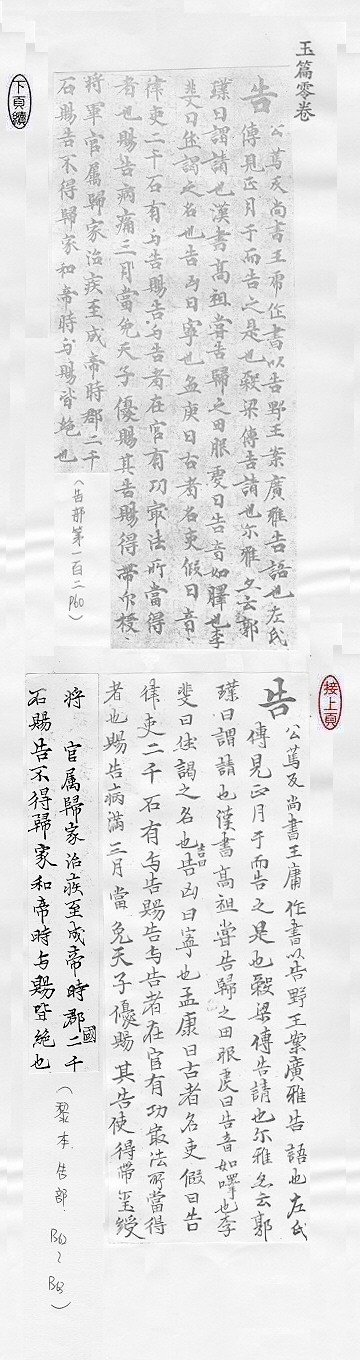 玉篇零卷
告
公蔦反尚書王庸作書以告野王案廣雅告語也左氏
傳見正月于而告之是也穀梁傳告請也尒雅亦云郭
璞曰謂請也漢書高祖嘗告歸之田服虔曰告音如嘷也李
斐曰休謁之名也告凶曰寧也孟康曰古者名吏假曰告音
律吏二千石有与告賜告与告者在官有功最法所當得
者也賜告病痛三月當免天子優賜其告賜得帶印杖
將軍官属歸家治疾至成帝時郡二千
石賜告不得歸家和帝時与賜皆絶也
(告部第一百二 P60)
下頁續
接上頁
告
公蔦反尚書王庸作書以告野王案廣雅告語也左氏
傳見正月于而告之是也穀梁傳告請也尒雅亦云郭
璞曰謂請也漢書高祖嘗告歸之田服虔曰告音如嘷也李
斐曰休謁之名也吉曰告凶曰寧也孟康曰古者名吏假曰告
律吏二千石有与告賜告与告者在官有功最法所當得
者也賜告病滿三月當免天子優賜其告使得帶璽綬
將 官属歸家治疾至成帝時郡國二千
石賜告不得歸家和帝時与賜皆絶也
(黎本 告部 )